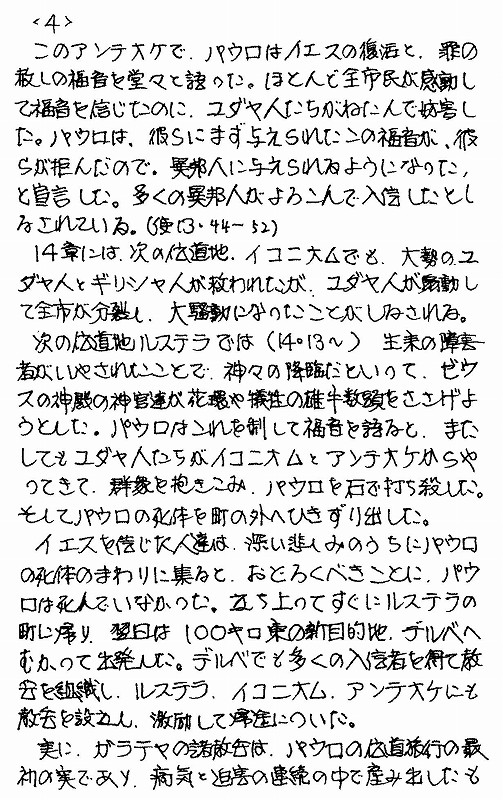 <4>
このアンテオケで、パウロはイエスの復活と、罪の
赦しの福音を堂々と語った。ほとんど全市民が感動し
て福音を信じたのに、ユダヤ人たちがねたんで妨害し
た。パウロは、彼らにまず与えられたこの福音が、彼
らが拒んだので、異邦人に与えられるようになった、
と宣言した。多くの異邦人がよろこんで入信したとし
るされている。(使13・44〜52)
14章には、次の伝道地、イコニオムでも、大勢のユ
ダヤ人とギリシャ人が救われたが、ユダヤ人が扇動し
て全市が分裂し、大騒動になったことがしるされる。
次の伝道地ルステラでは(14・13〜) 生来の障害
者がいやされたことで、神々の降臨だといって、ゼウ
スの神殿の神官達が花環や犠牲の雄牛数頭をささげよ
うとした。パウロはこれを制して福音を語ると、また
してもユダヤ人たちがイコニオムとアンテオケからや
ってきて、群衆を抱きこみ、パウロを石で打ち殺した。
そしてパウロの死体を町の外へひきずり出した。
イエスを信じた人達は、深い悲しみのうちにパウロ
の死体のまわりに集ると、おどろくべきことに、パウ
ロは死んでいなかった。立ち上ってすぐにルステラの
町に帰り、翌日は100キロ東の新目的地、デルベへ
むかって出発した。デルベでも多くの入信者を得て教
会を組織し、ルステラ、イコニオム、アンテオケにも
教会を設立し、激励して帰途についた。
実に、ガラテヤの諸教会は、パウロの伝道旅行の最
初の実であり、病気と迫害の連続の中で産み出したも